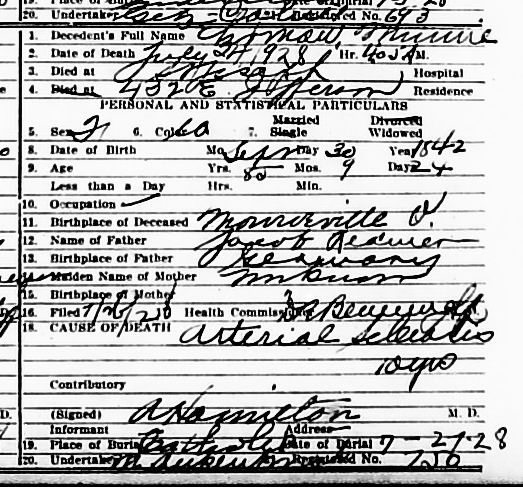 19. Place of Burial
20. Undertaker Registered No. 693
1. Decedent's Full Name
2. Date of Death July 24 1928 Hr. M.
3. Died at St Joseph Hospital
4. Died at 432 E Jefferson Residence
PERSONAL AND STATISTICAL PARTICULARS
5. Sex 6. Color 7. Married Single Divorced Widowed
8. Date of Birth Mo. Sept Day 30 Year 1842
9. Age Yrs. 85 Mos. 9 Days 24
Less than a Day Hrs. Min.
10. Occupation
11. Birthplace of Deceased Monroeville O.
12. Name of Father Jacob
13. Birthplace of Father Germany
Maiden Name of Mother Unknown
15. Birthplace of Mother
16. Filed 7/26/28 Health Commissioner
18. CAUSE OF DEATH Arterial Sclerosis
10 yrs
Contributory
(Signed) A Hamilton M. D.
Informant Address
19. Place of Burial Catholic Date of Burial 7-27-28
20. Undertaker Registered No. 750